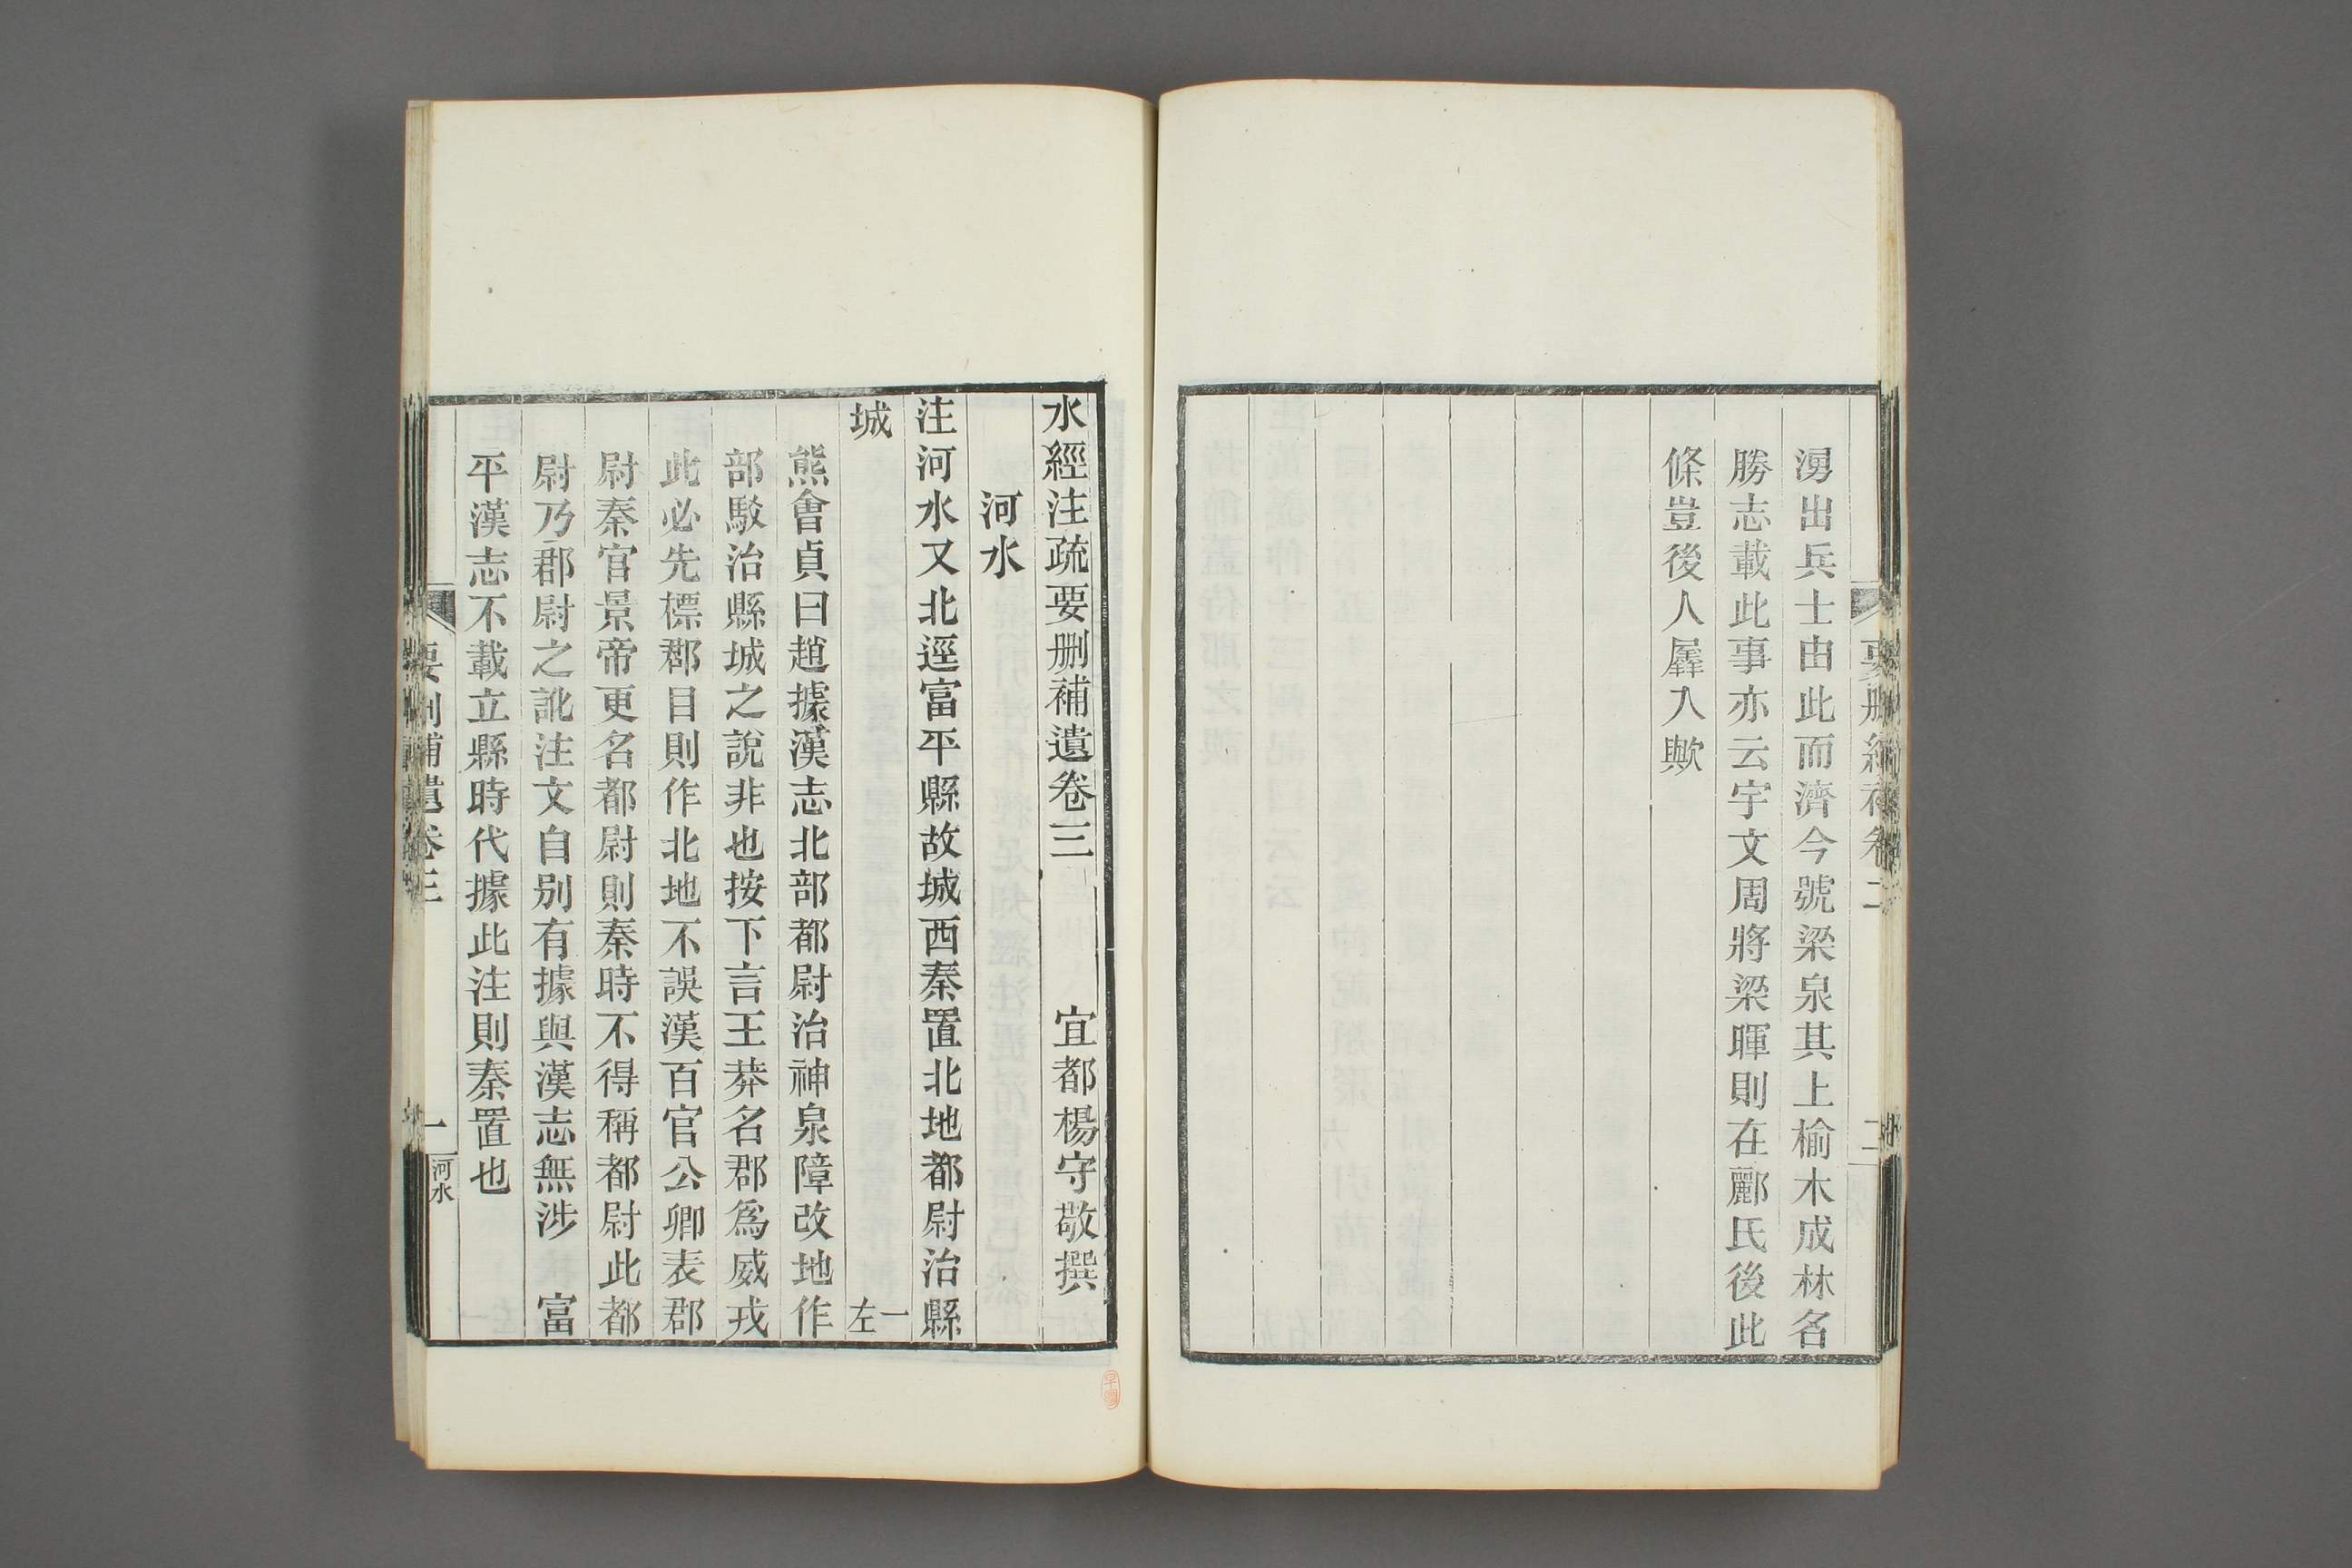 湧出兵士由此而濟今號梁泉其上榆木成林名
勝志載此事亦云宇文周將梁暉則在酈氏後此
條豈後人羼入歟
水經注疏要删補遺卷三　宜都楊守敬撰
河水
注河水又北逕富平縣故城西秦置北地都尉治縣
城　一左
熊會貞曰趙據漢志北部都尉治神泉障改地作
部駁治縣城之說非也按下言王莽名郡爲威戎
此必先標郡目則作北地不誤漢百官公卿表郡
尉秦官景帝更名都尉則秦時不得稱都尉此都
尉乃郡尉之訛注文自别有據與漢志無涉　富
平漢志不載立縣時代據此注則秦置也
要删補遺卷三　一　河水